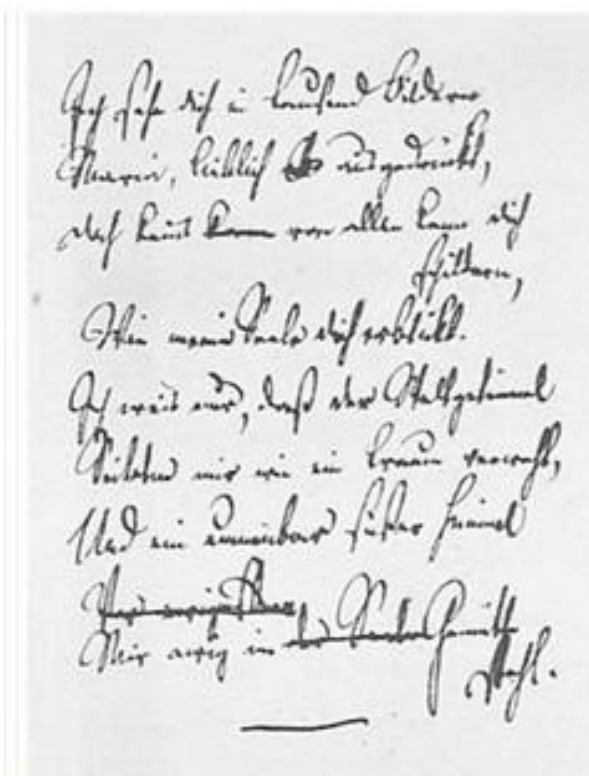 Ich sehe dich in tausend Bildern
Maria, lieblich ausgedrückt,
Doch keins von allen kann dich
schildern,
Wie meine Seele dich erblickt.
Ich weis nur, daß der Welt getümmel
Seitdem mir wie ein Traum verweht,
Und ein unnenbar süßer Himmel
Mir ewig im Gemüthe
steht.